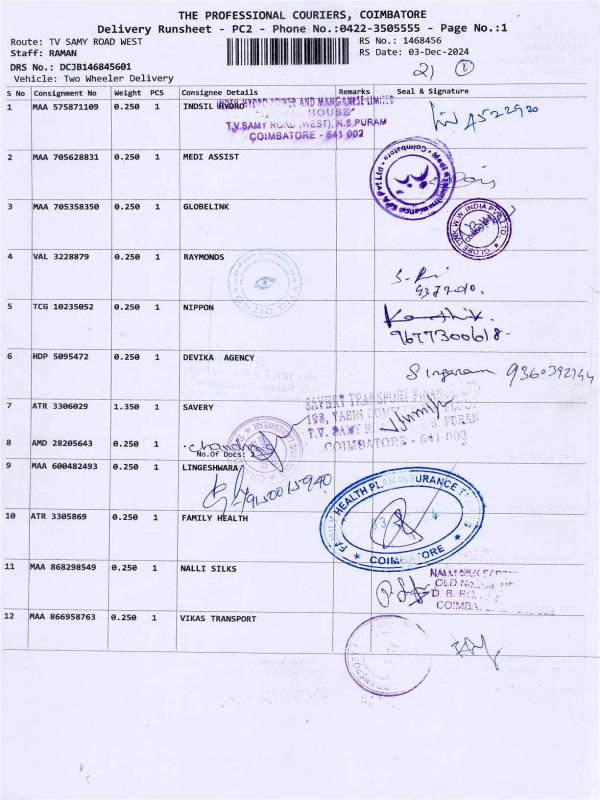 THE PROFESSIONAL COURIERS, COIMBATORE
Delivery Runsheet - PC2 - Phone No.:0422-3505555 - Page No.:1
Route: TV SAMY ROAD WEST
RS No.: 1468456
Staff: RAMAN
RS Date: 03-Dec-2024
DRS No.: DCJB146845601
Vehicle: Two Wheeler Delivery
2)
S No Consignment No Weight PCS Consignee Details Remarks Seal & Signature
1 MAA 575871109 0.250 1 INDSIL HYDRO
INDSIL HYDRO POWER AND MANGANESE LIMITED
HOUSE"
T.V.SAMY ROAD (WEST), R.S.PURAM
COIMBATORE - 641 002
2 MAA 705628831 0.250 1 MEDI ASSIST
3 MAA 705358350 0.250 1 GLOBELINK
GLOBE LINK W.W INDIA PVT LTD.
4 VAL 3228879 0.250 1 RAYMONDS
5 TCG 10235052 0.250 1 NIPPON
Karthik
9677300618
6 HDP 5095472 0.250 1 DEVIKA AGENCY
Singaram 9360392144
7 ATR 3306029 1.350 1 SAVERY
T.V. SAMY
PURAM
COIMBATORE - 641 002
8 AMD 28205643 0.250 1
No.Of Docs: 2
9 MAA 600482493 0.250 1 LINGESHWARA
10 ATR 3305869 0.250 1 FAMILY HEALTH
FAMILY HEALTH PLAN INSURANCE
COIMBATORE
11 MAA 868298549 0.250 1 NALLI SILKS
NALLI SILK
OLD No.
D. B. RO
COIMBA
12 MAA 866958763 0.250 1 VIKAS TRANSPORT